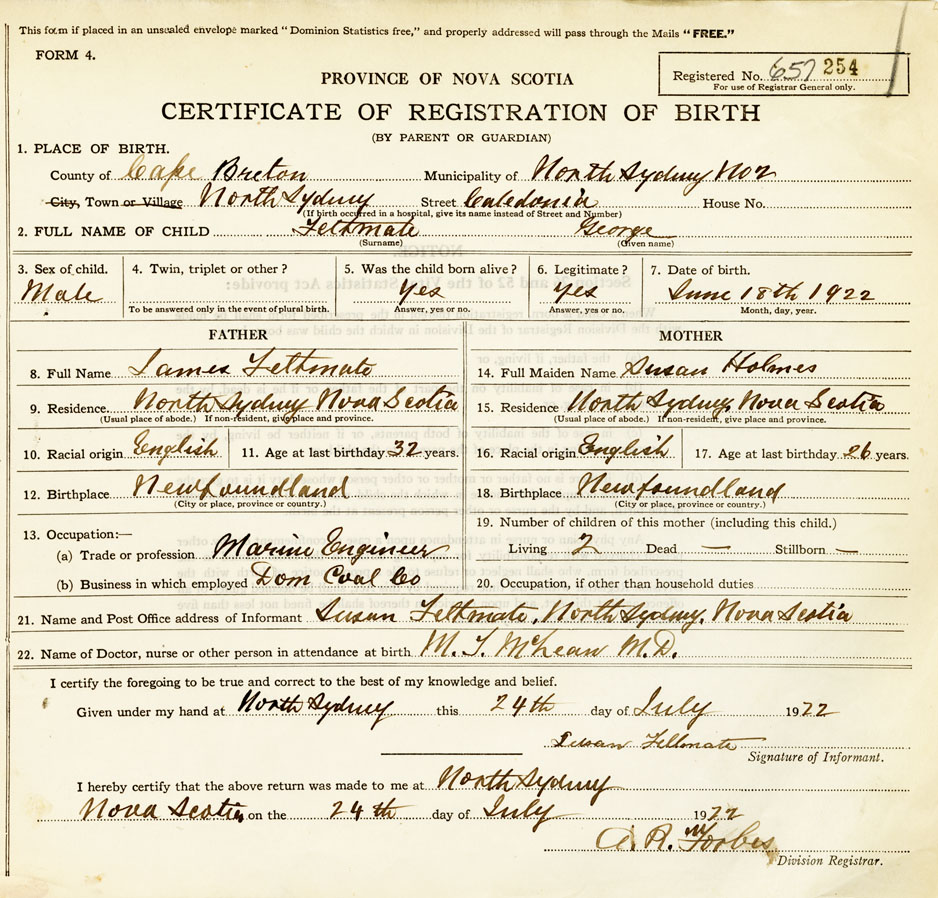 This form if placed in an unsealed envelope marked "Dominion Statistics free," and properly addressed will pass through the Mails "FREE."
FORM 4.
PROVINCE OF NOVA SCOTIA
Registered No. 657 254
For use of Registrar General only.
CERTIFICATE OF REGISTRATION OF BIRTH
(BY PARENT OR GUARDIAN)
1. PLACE OF BIRTH.
County of Cape Breton Municipality of North Sydney No 2
City, Town or Village North Sydney Street Caledonia House No.
(If birth occurred in a hospital, give its name instead of Street and Number)
2. FULL NAME OF CHILD Feltmate George
(Surname) (Given name)
3. Sex of child. 4. Twin, triplet or other? 5. Was the child born alive? 6. Legitimate? 7. Date of birth.
Male Yes Yes June 18th 1922
To be answered only in the event of plural birth. Answer, yes or no. Answer, yes or no. Month, day, year.
FATHER MOTHER
8. Full Name James Feltmate 14. Full Maiden Name Susan Holmes
9. Residence. North Sydney Nova Scotia 15. Residence North Sydney, Nova Scotia
(Usual place of abode.) If non-resident, give place and province. (Usual place of abode.) If non-resident, give place and province.
10. Racial origin English 11. Age at last birthday 32 years. 16. Racial origin English 17. Age at last birthday 26 years.
12. Birthplace Newfoundland 18. Birthplace Newfoundland
(City or place, province or country.) (City or place, province or country.)
13. Occupation:— 19. Number of children of this mother (including this child.)
(a) Trade or profession Marine Engineer Living 2 Dead — Stillborn —
(b) Business in which employed Dom Coal Co 20. Occupation, if other than household duties
21. Name and Post Office address of Informant Susan Feltmate, North Sydney, Nova Scotia
22. Name of Doctor, nurse or other person in attendance at birth M. T. McLean M.D.
I certify the foregoing to be true and correct to the best of my knowledge and belief.
Given under my hand at North Sydney this 24th day of July 1922
Susan Feltmate
Signature of Informant.
I hereby certify that the above return was made to me at North Sydney
Nova Scotia on the 24th day of July 1922
A. R. McForbes
Division Registrar.